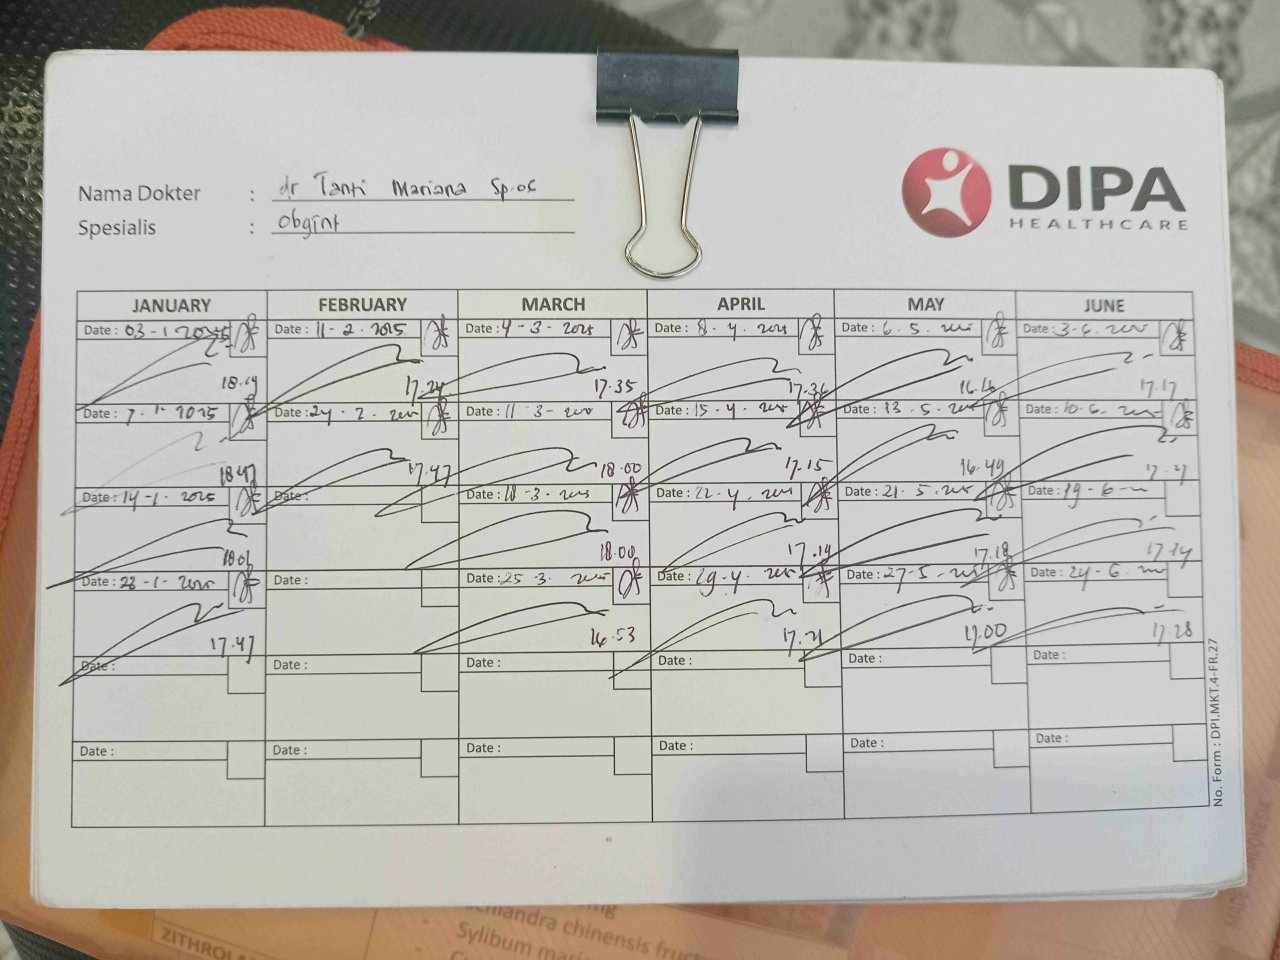 DIPA
HEALTHCARE
Nama Dokter : dr Tanti Mariana Sp.OG
Spesialis : Obgin
JANUARY FEBRUARY MARCH APRIL MAY JUNE
Date : 03-1-2025 Date : 11-2-2025 Date : 4-3-2025 Date : 8-4-2025 Date : 6-5- Date : 3-6-
17.35 17.36 16.16 17.17
Date : 7-1-2025 Date : 24-2- Date : 11-3- Date : 15-4- Date : 13-5- Date : 10-6-
18.47 17.47 18.00 17.15 16.49
Date : 14-1-2025 Date : Date : 18-3- Date : 22-4- Date : 21-5- Date : 19-6-
18.06 18.00 17.19 17.18 17.14
Date : 28-1- Date : Date : 25-3- Date : 29-4- Date : 27-5- Date : 24-6-
17.47 16.53 17.21 17.00 17.28
Date : Date : Date : Date : Date : Date :
Date : Date : Date : Date : Date : Date :
No. Form : DPI.MKT.4-FR.27
chinensis
Sylibum